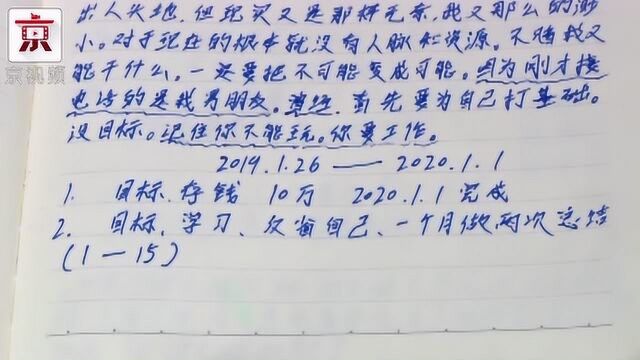 京
京视频
出人头地,但现实又是那样无奈,我又那么的渺
小。对于现在的根本就没有人脉和资源。不赌我又
能干什么。一定要把不可能变成可能。因为刚才接
电话的是我男朋友。 首先要为自己打基础。
没目标。记住你不能玩。你要工作。
2019.1.26 — 2020.1.1
1. 目标、存钱 10万 2020.1.1 完成
2. 目标、学习、反省自己、一个月做两次总结
(1—15)